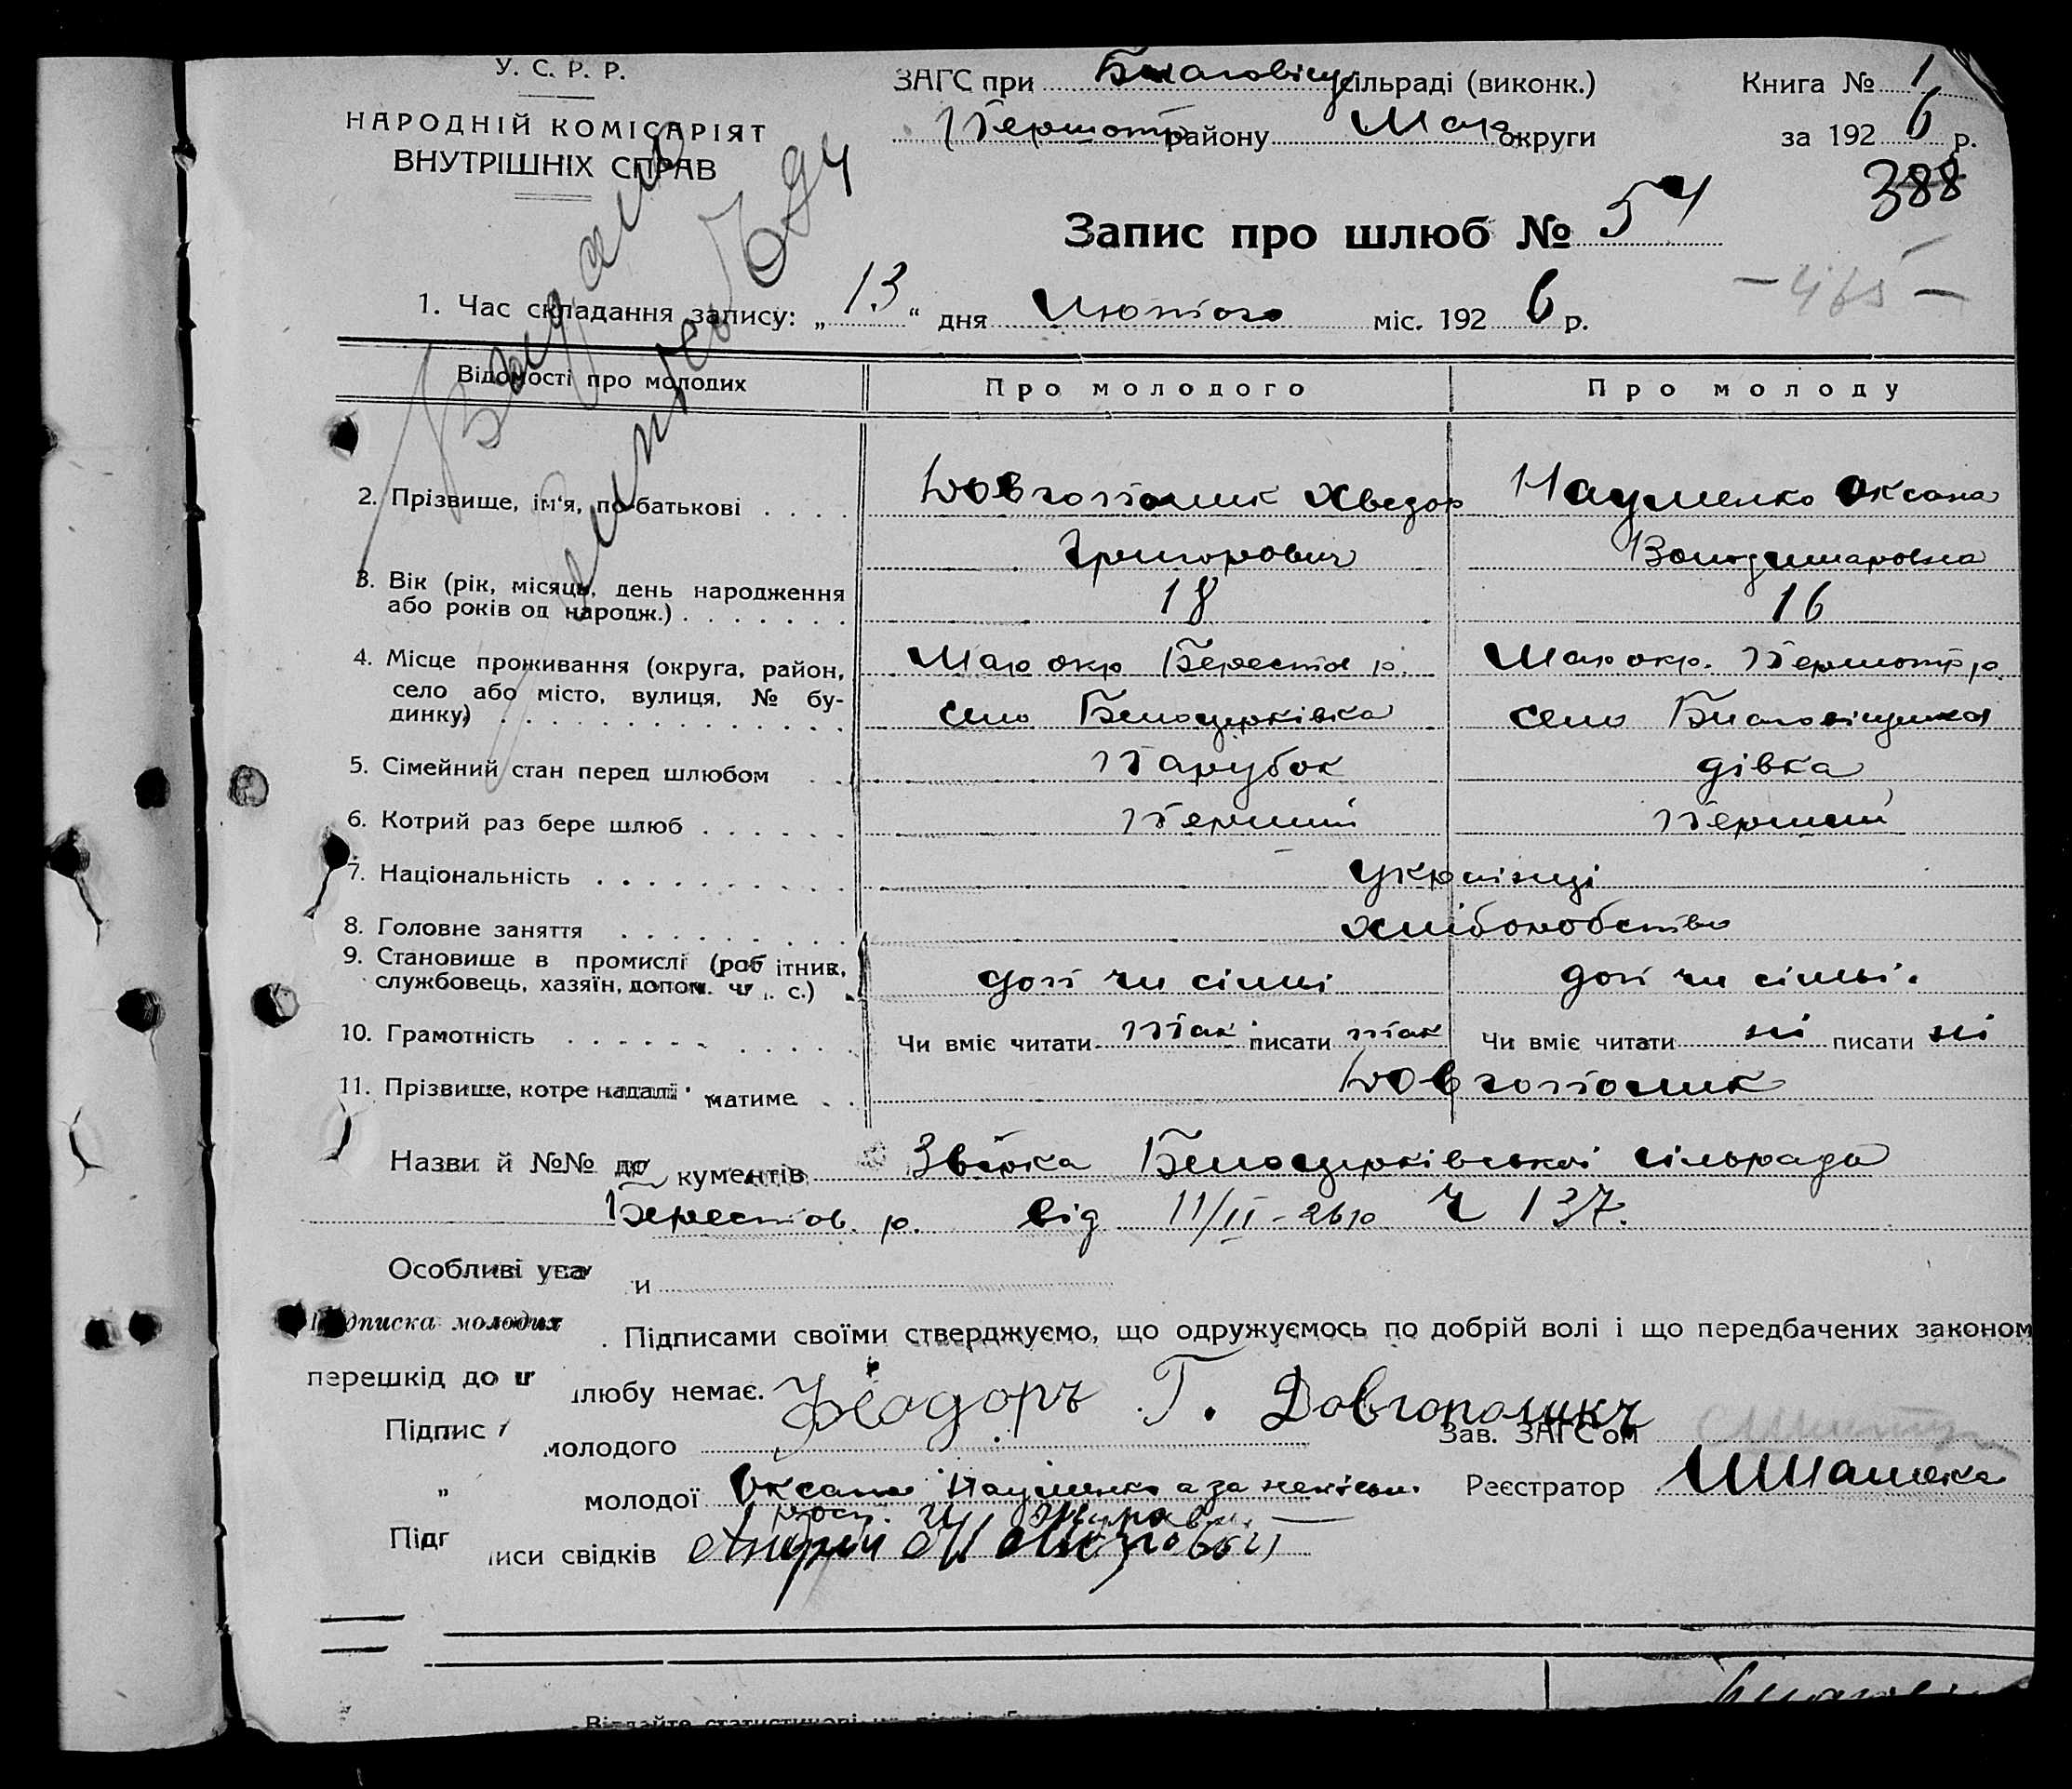 У. С. Р. Р.
НАРОДНІЙ КОМІСАРІЯТ
ВНУТРІШНІХ СПРАВ
ЗАГС при Благовіщ сільраді (виконк.)
Першотр району Мар. округи
Книга № 1
за 1926 р.
388
Запис про шлюб № 54
1. Час складання запису: „13“ дня Лютого міс. 1926 р.
Відомості про молодих Про молодого Про молоду
2. Прізвище, ім'я, по-батькові . . . . Довгополик Хведор Науменко Оксана
Григорович Володимировна
3. Вік (рік, місяць, день народження
або років од народж.) . . . . . . . 18 16
4. Місце проживання (округа, район, Мар окр Берестов р. Мар окр. Першотр р.
село або місто, вулиця, № бу-
динку) . . . . . . . . . . . . . . село Белоцерківка село Благовіщенка
5. Сімейний стан перед шлюбом . . Парубок дівка
6. Котрий раз бере шлюб . . . . . . Перший Перший
7. Національність . . . . . . . . . . українці
8. Головне заняття . . . . . . . . . хліборобство
9. Становище в промислі (робітник,
службовець, хазяїн, допом. чл. с.) . доп чл сімьі доп чл сімьі.
10. Грамотність . . . . . . . . . . . Чи вміє читати так писати так Чи вміє читати ні писати ні
11. Прізвище, котре надалі матиме . . Довгополик
Назви й №№ документів Звірка Белоцерківської сільради
Берестов. р. від 11/II-26 р ч 137.
Особливі уваги
Підписка молодих. Підписами своїми стверджуємо, що одружуємось по добрій волі і що передбачених законом
перешкід до шлюбу немає.
Підпис молодого Феодоръ Г. Довгополикъ Зав. ЗАГС'ом
„ молодої Оксана Науменко а за неписьм. Реєстратор
росп.
Підписи свідків Андрей